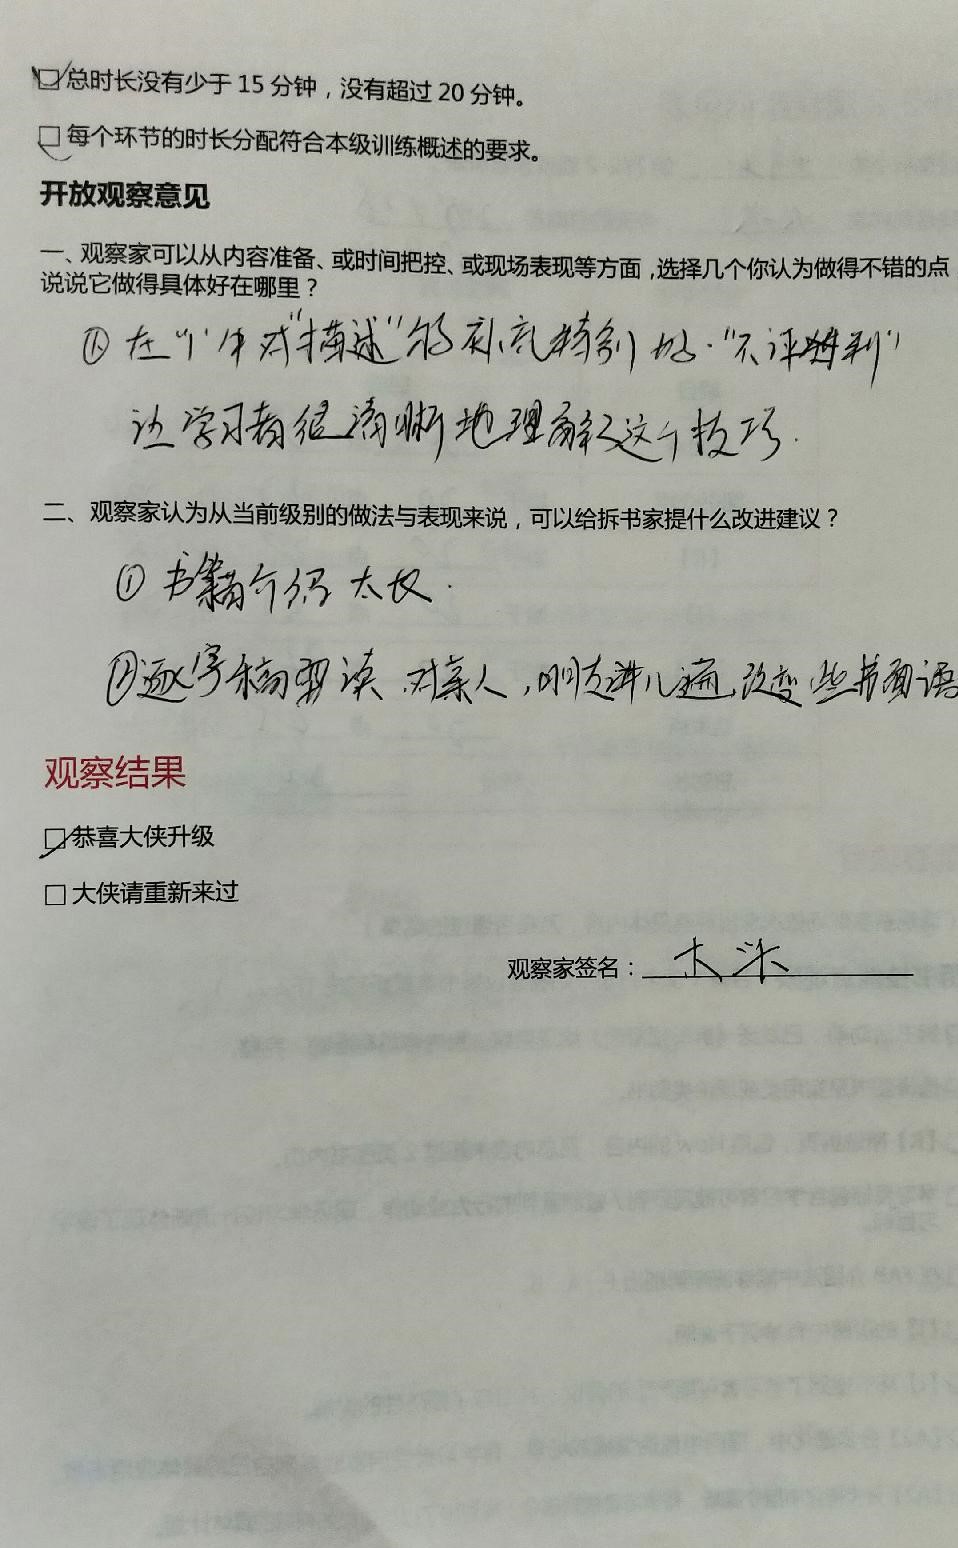 □总时长没有少于 15 分钟，没有超过 20 分钟。
□每个环节的时长分配符合本级训练概述的要求。
开放观察意见
一、观察家可以从内容准备、或时间把控、或现场表现等方面，选择几个你认为做得不错的点
说说它做得具体好在哪里？
① 在"I"中对"描述"的 特别好."不评判"
让学习者很清晰地理解这个技巧.
二、观察家认为从当前级别的做法与表现来说，可以给拆书家提什么改进建议？
① 书籍介绍太长.
②逐字稿要读,对亲人,朋友讲几遍,改变些书面语
观察结果
□恭喜大侠升级
□ 大侠请重新来过
观察家签名：